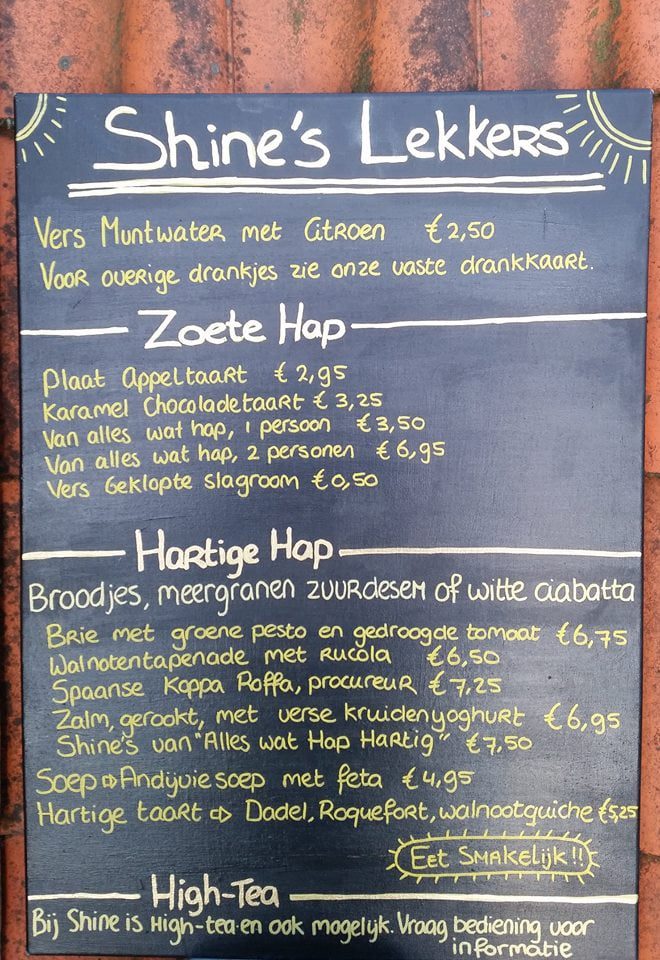 Shine's Lekkers
Vers Muntwater met Citroen €2,50
Voor overige drankjes zie onze vaste drankkaart.
Zoete Hap
Plaat Appeltaart €2,95
Karamel Chocoladetaart €3,25
Van alles wat hap, 1 persoon €3,50
Van alles wat hap, 2 personen €6,95
Vers Geklopte slagroom €0,50
Hartige Hap
Broodjes, meergranen zuurdesem of witte ciabatta
Brie met groene pesto en gedroogde tomaat €6,75
Walnotentapenade met rucola €6,50
Spaanse Koppa Roffa, procureur €7,25
Zalm, gerookt, met verse kruidenyoghurt €6,95
Shine's van "Alles wat Hap Hartig" €7,50
Soep ⇨ Andijvie soep met feta €4,95
Hartige taart ⇨ Dadel, Roquefort, walnootquiche €5,25
Eet Smakelijk!!
High-Tea
Bij Shine is High-tea-en ook mogelijk. Vraag bediening voor
informatie